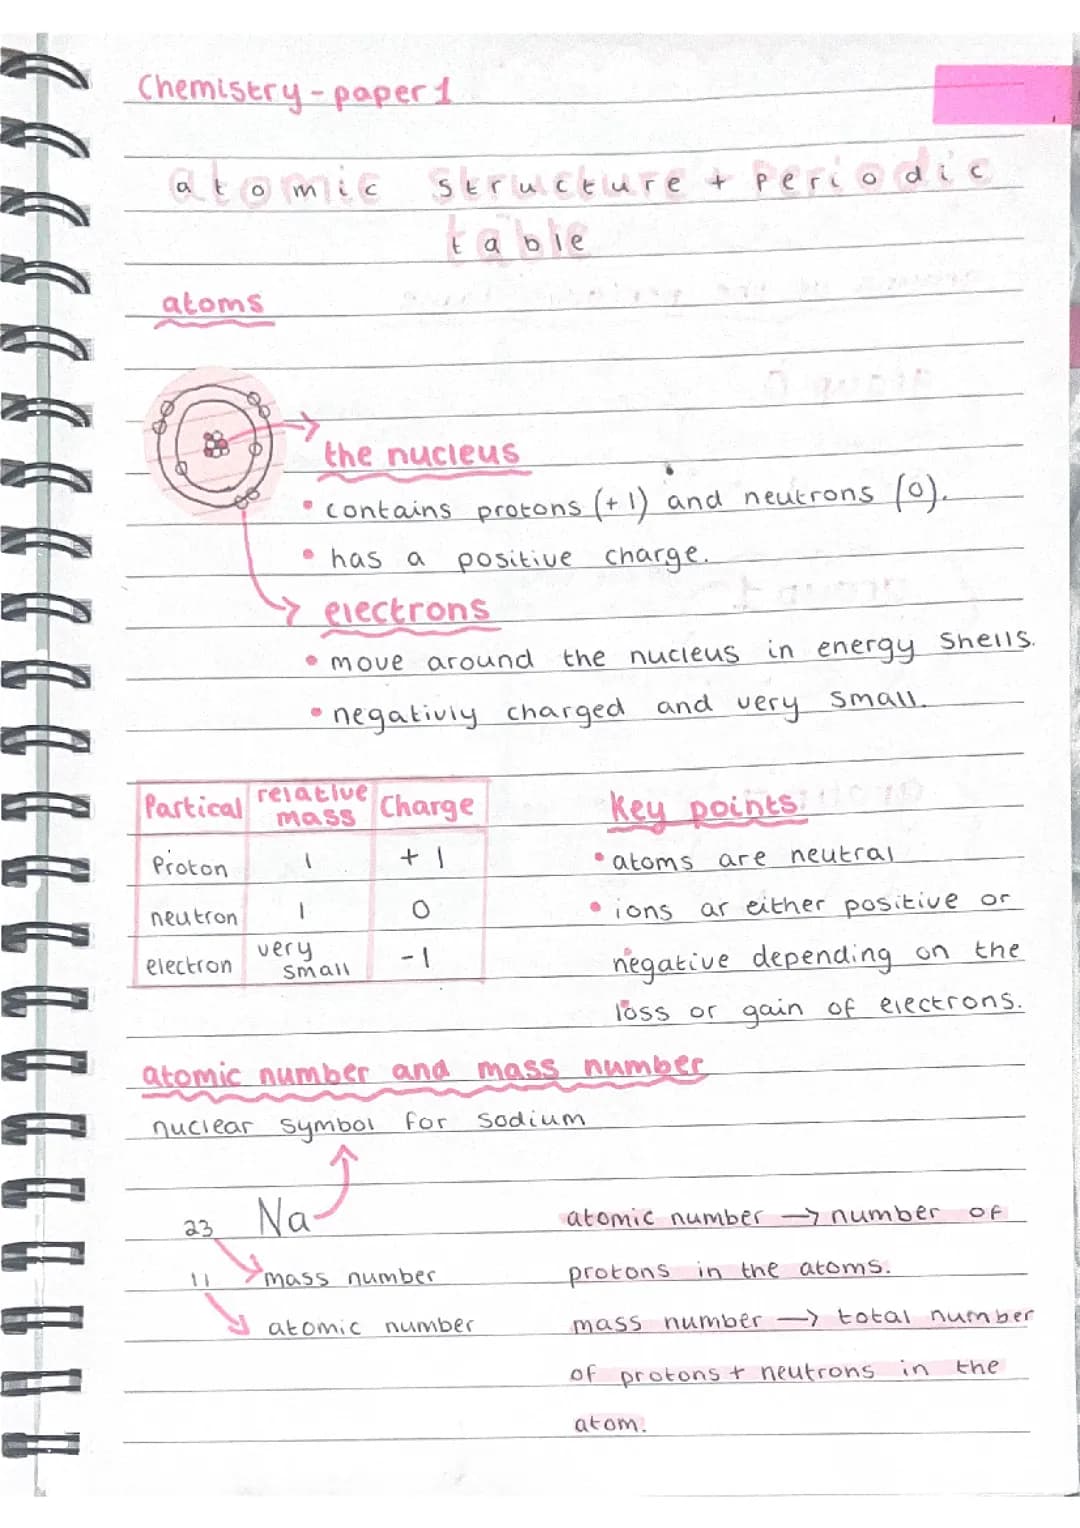 Chemistry - paper 1
atomic structure + periodic
table
atoms
the nucleus
• contains protons (+1) and neutrons (0).
• has a positive charge.
electrons
• move around the nucleus in energy shells.
• negativly charged and very small.
Partical relative mass Charge
Proton 1 +1
neutron 1 0
electron very small -1
Key points:
• atoms are neutral
• ions ar either positive or
negative depending on the
loss or gain of electrons.
atomic number and mass number
nuclear symbol for sodium
23 Na
mass number
11
atomic number
atomic number → number of
protons in the atoms.
mass number → total number
of protons + neutrons in the
atom.